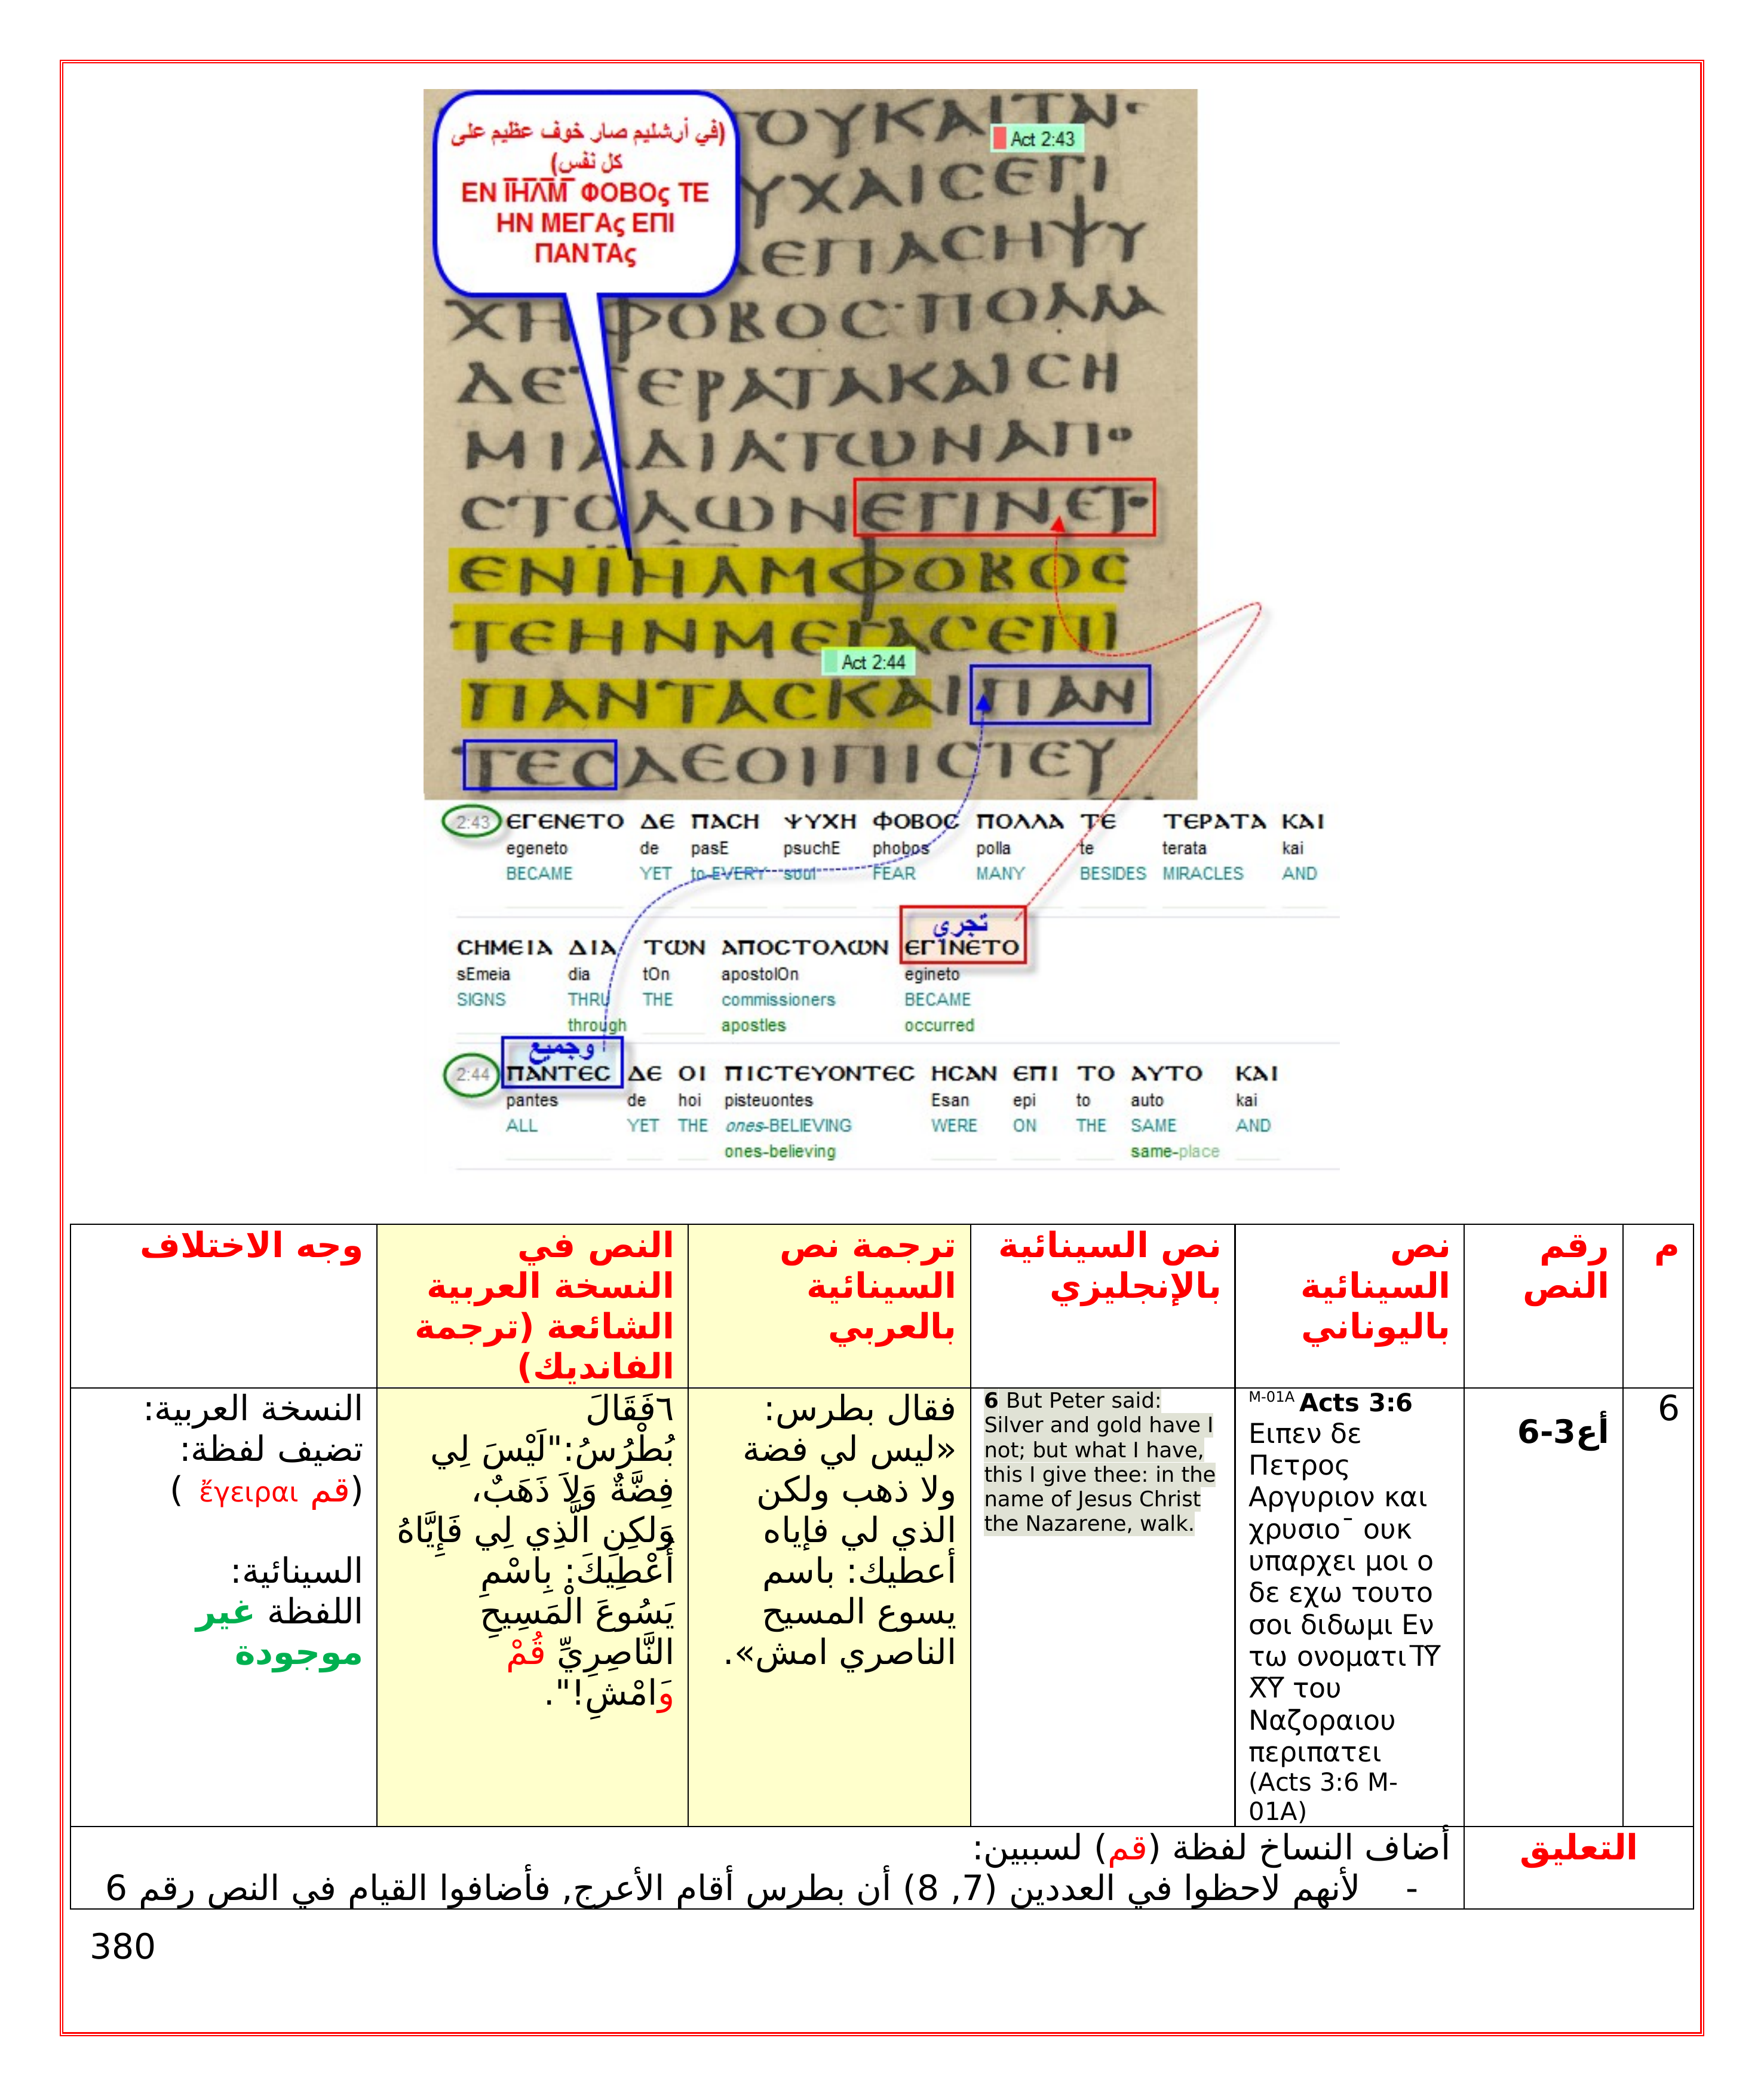 (في أرشليم صار خوف عظيم على
كل نفس)
ΕΝ ῙΗ̅Λ̅Μ̅ ΦΟΒΟς ΤΕ
ΗΝ ΜΕΓΑς ΕΠΙ
ΠΑΝΤΑς
ΤΟΥΚΑΙΤΑ
Act 2:43
ΥΧΑΙϹΕΓΙ
ΔΕΠΑϹΗΨΥ
ΧΗΦΟΒΟϹ·ΠΟΛΛΑ
ΔΕΤΕΡΑΤΑΚΑΙϹΗ
ΜΙΑΔΙΑΤΩΝΑΠΟ
ϹΤΟΛΩΝΕΓΙΝΕΤΟ
ΕΝΙΗΛΜΦΟΒΟϹ
ΤΕΗΝΜΕΓΑϹΕΠΙ
Act 2:44
ΠΑΝΤΑϹΚΑΙΠΑΝ
ΤΕϹΔΕΟΙΠΙϹΤΕΥ
2:43 ΕΓΕΝΕΤΟ ΔΕ ΠΑϹΗ ΨΥΧΗ ΦΟΒΟϹ ΠΟΛΛΑ ΤΕ ΤΕΡΑΤΑ ΚΑΙ
egeneto de pasE psuchE phobos polla te terata kai
BECAME YET to-EVERY soul FEAR MANY BESIDES MIRACLES AND
تجري
ϹΗΜΕΙΑ ΔΙΑ ΤΩΝ ΑΠΟϹΤΟΛΩΝ ΕΓΙΝΕΤΟ
sEmeia dia tOn apostolOn egineto
SIGNS THRU THE commissioners BECAME
through apostles occurred
وجميع
2:44 ΠΑΝΤΕϹ ΔΕ ΟΙ ΠΙϹΤΕΥΟΝΤΕϹ ΗϹΑΝ ΕΠΙ ΤΟ ΑΥΤΟ ΚΑΙ
pantes de hoi pisteuontes Esan epi to auto kai
ALL YET THE ones-BELIEVING WERE ON THE SAME AND
ones-believing same-place
م
رقم
النص
نص
السينائية
باليوناني
نص السينائية
بالإنجليزي
ترجمة نص
السينائية
بالعربي
النص في
النسخة العربية
الشائعة (ترجمة
الفانديك)
وجه الاختلاف
6
أع3-6
M-01A Acts 3:6
Ειπεν δε
Πετρος
Αργυριον και
χρυσιο¯ ουκ
υπαρχει μοι ο
δε εχω τουτο
σοι διδωμι Εν
τω ονοματι Ι̅Υ̅
Χ̅Υ̅ του
Ναζοραιου
περιπατει
(Acts 3:6 M-
01A)
6 But Peter said:
Silver and gold have I
not; but what I have,
this I give thee: in the
name of Jesus Christ
the Nazarene, walk.
فقال بطرس:
«ليس لي فضة
ولا ذهب ولكن
الذي لي فإياه
أعطيك: باسم
يسوع المسيح
الناصري امش».
٦فَقَالَ
بُطْرُسُ:"لَيْسَ لِي
فِضَّةٌ وَلاَ ذَهَبٌ،
وَلكِنِ الَّذِي لِي فَإِيَّاهُ
أُعْطِيكَ: بِاسْمِ
يَسُوعَ الْمَسِيحِ
النَّاصِرِيِّ قُمْ
وَامْشِ!".
النسخة العربية:
تضيف لفظة:
(قم ἔγειραι )
السينائية:
اللفظة غير
موجودة
التعليق
أضاف النساخ لفظة (قم) لسببين:
- لأنهم لاحظوا في العددين (7, 8) أن بطرس أقام الأعرج, فأضافوا القيام في النص رقم 6
380